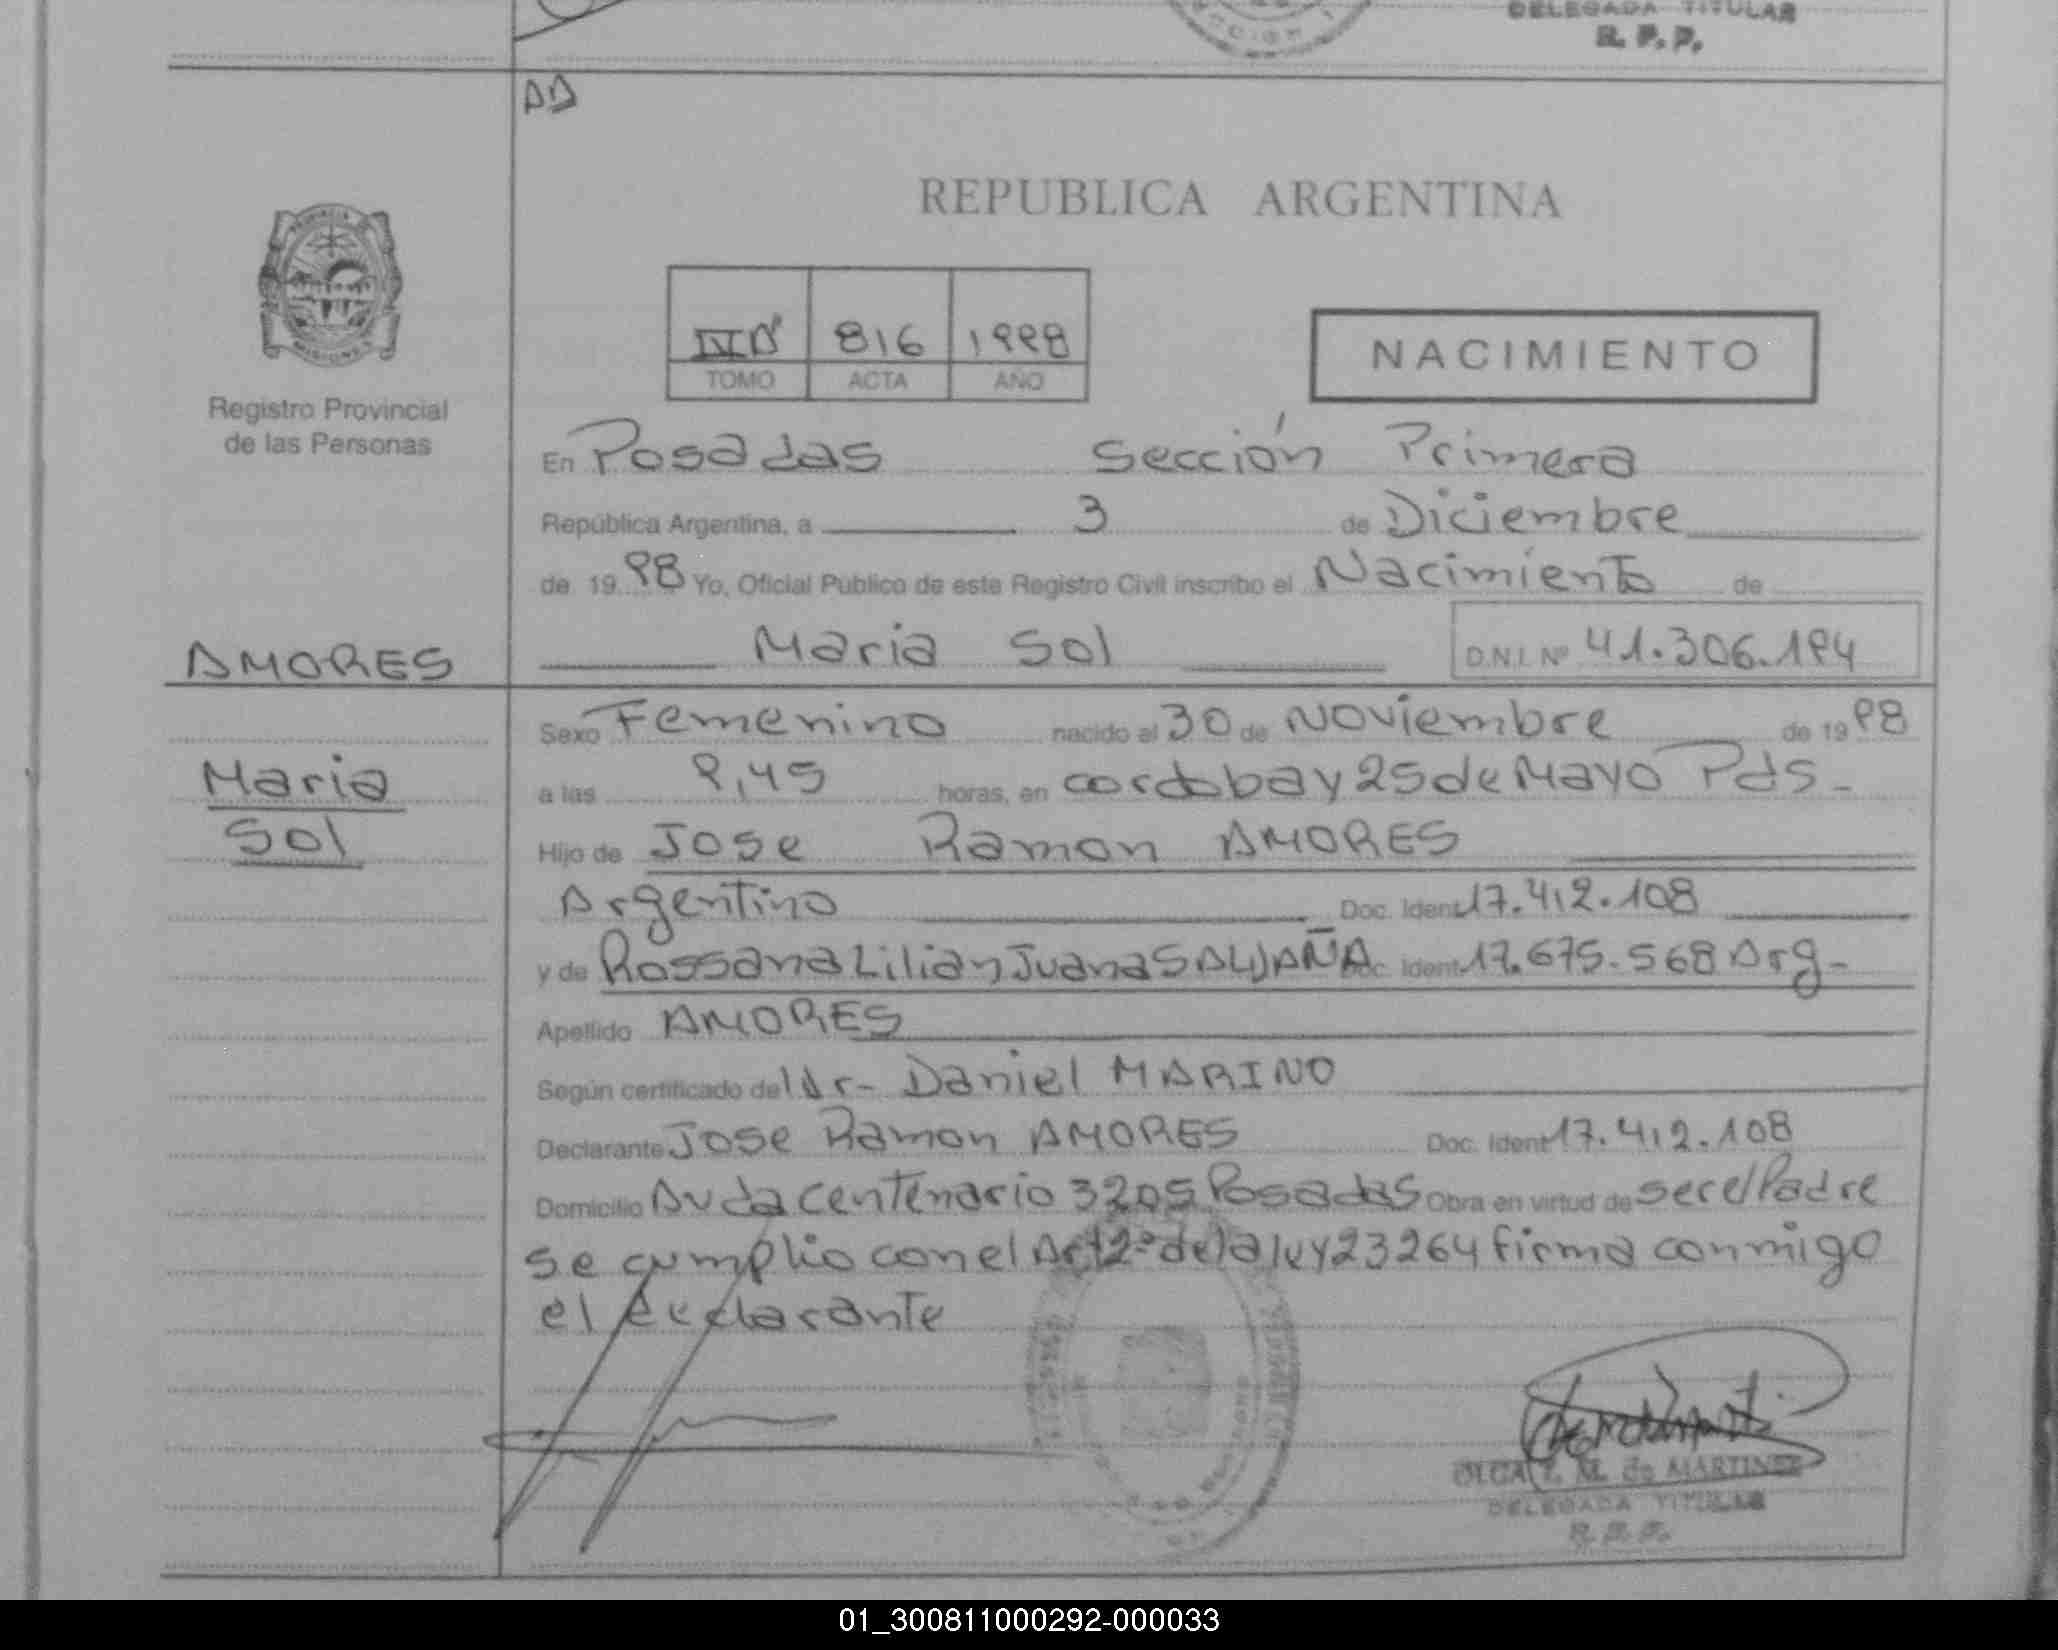 DELEGADA TITULAR
R. P. P.
REPUBLICA ARGENTINA
816 1998
TOMO ACTA AÑO
NACIMIENTO
MISIONES
Registro Provincial
de las Personas
En Posadas Sección Primera
República Argentina, a 3 de Diciembre
de 19 98 Yo, Oficial Público de este Registro Civil inscribo el Nacimiento de
AMORES
Maria Sol D.N.I. Nº 41.306.194
Sexo Femenino nacido el 30 de Noviembre de 19 98
Maria
Sol
a las 9,45 horas, en cordoba y 25 de Mayo Pds-
Hijo de Jose Ramon AMORES
Argentino Doc. Ident 17.412.108
y de Rossana Lilian Juana SALDAÑA Doc. Ident 17.675.568 Arg-
Apellido AMORES
Según certificado del Dr- Daniel MARINO
Declarante Jose Ramon AMORES Doc. Ident 17.412.108
Domicilio Avda Centenario 3205 Posadas Obra en virtud de ser el Padre
se cumplio con el Art 2º de la ley 23264 firma conmigo
el declarante
OLGA M. de MARTINEZ
DELEGADA TITULAR
R. P. P.
01_300811000292-000033